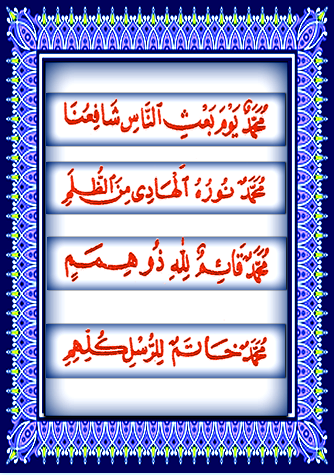 مُحَمَّدٌ يَوْمَ بَعْثِ النَّاسِ شَافِعُنَا
مُحَمَّدٌ نُورُهُ الْهَادِي مِنَ الظُّلَمِ
مُحَمَّدٌ قَائِمٌ لِلّٰهِ ذُو هِمَمٍ
مُحَمَّدٌ خَاتَمٌ لِلرُّسْلِ كُلِّهِمِ